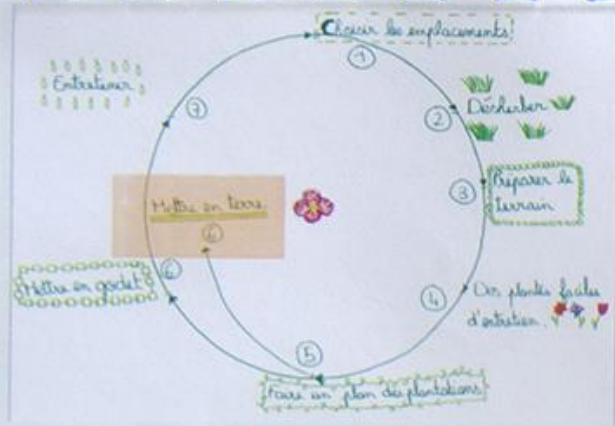 Choisir les emplacements
1
2
Désherber
3
Préparer le
terrain
4
Des plantes faciles
d'entretien.
5
Faire un plan des plantations
6
Mettre en godet
6
Mettre en terre
7
Entretenir